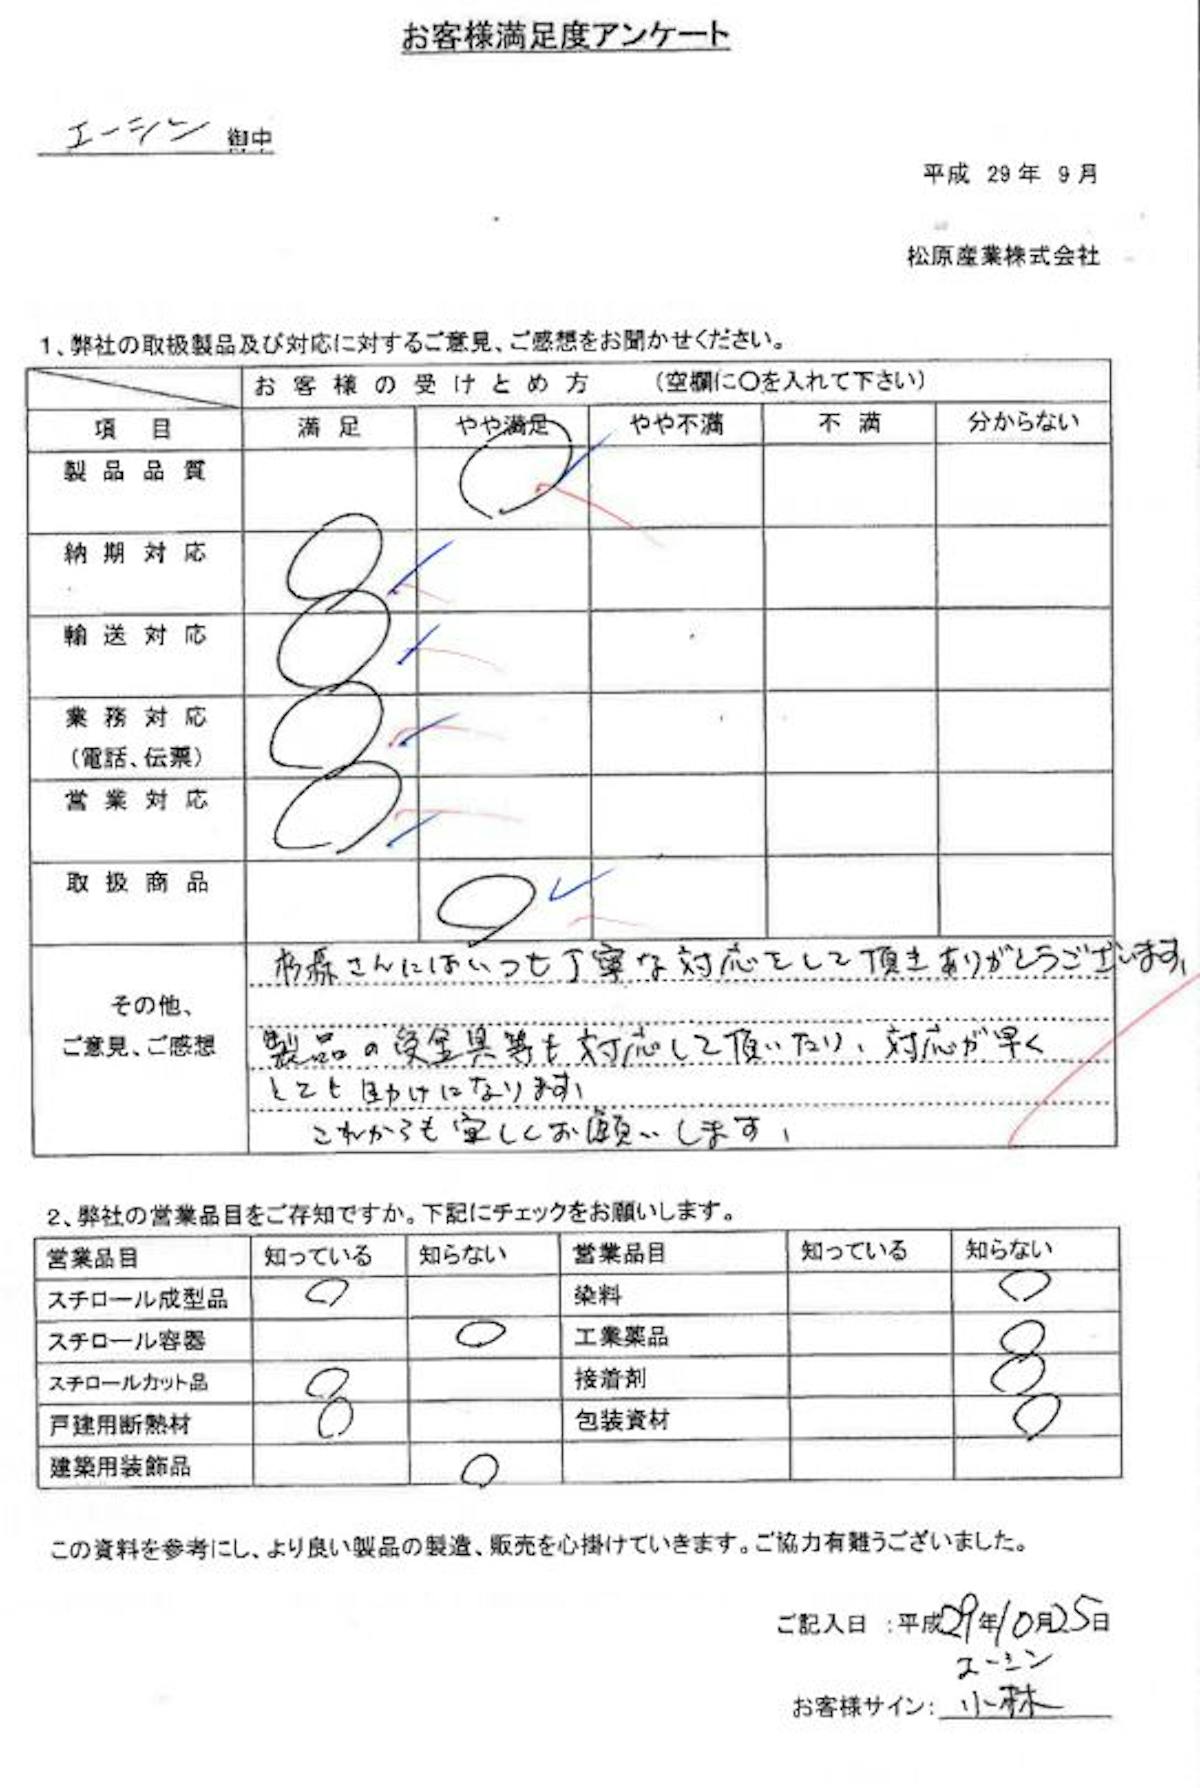 お客様満足度アンケート
エーシン 御中
平成 29年 9月
松原産業株式会社
1、弊社の取扱製品及び対応に対するご意見、ご感想をお聞かせください。
お客様の受けとめ方 （空欄に〇を入れて下さい）
項目 満足 やや満足 やや不満 不満 分からない
製品品質 〇
納期対応 〇
輸送対応 〇
業務対応 〇
（電話、伝票）
営業対応 〇
取扱商品 〇
さんにはいつも丁寧な対応をして頂きありがとうございます。
その他、
ご意見、ご感想
製品の受金具等も対応して頂いたり、対応が早く
とても助けになります。
これからも宜しくお願いします。
2、弊社の営業品目をご存知ですか。下記にチェックをお願いします。
営業品目 知っている 知らない 営業品目 知っている 知らない
スチロール成型品 〇 染料 〇
スチロール容器 〇 工業薬品 〇
スチロールカット品 〇 接着剤 〇
戸建用断熱材 〇 包装資材 〇
建築用装飾品 〇
この資料を参考にし、より良い製品の製造、販売を心掛けていきます。ご協力有難うございました。
ご記入日 ：平成29年10月25日
エーシン
お客様サイン： 小林